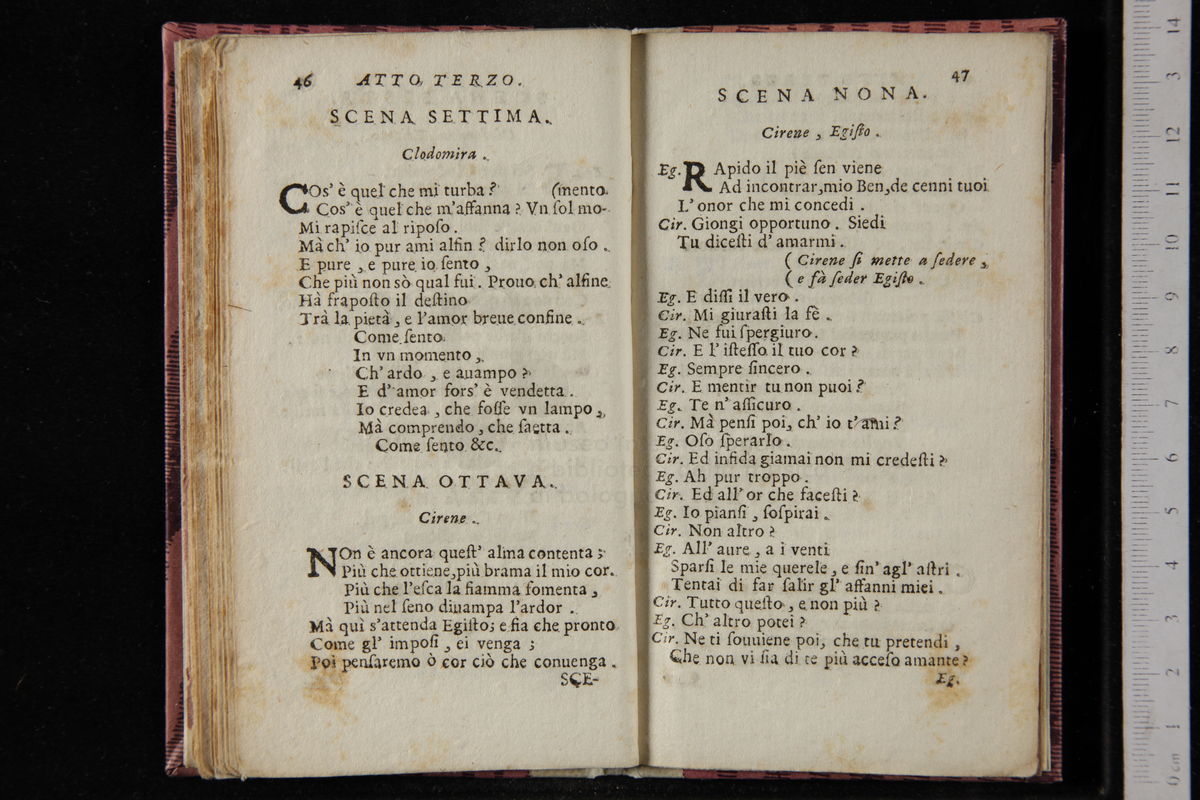 46 ATTO TERZO.
SCENA SETTIMA.
Clodomira.
COs' è quel che mi turba? (mento
Cos' è quel che m'affanna? Vn ſol mo-
Mi rapiſce al ripoſo.
Mà ch' io pur ami alfin? dirlo non oſo.
E pure, e pure io ſento,
Che più non sò qual fui. Prouo ch' alfine
Hà frapoſto il deſtino
Trà la pietà, e l'amor breue confine.
Come ſento
In vn momento,
Ch' ardo, e auampo?
E d' amor fors' è vendetta.
Io credea, che foſſe vn lampo,
Mà comprendo, che ſaetta.
Come ſento &c.
SCENA OTTAVA.
Cirene.
NOn è ancora queſt' alma contenta;
Più che ottiene, più brama il mio cor.
Più che l'eſca la fiamma fomenta,
Più nel ſeno diuampa l'ardor.
Mà quì s'attenda Egiſto; e ſia che pronto
Come gl' impoſi, ei venga;
Poi penſaremo ò cor ciò che conuenga.
SCE-
47
SCENA NONA.
Cirene, Egiſto.
Eg. RApido il piè ſen viene
Ad incontrar, mio Ben, de cenni tuoi
L' onor che mi concedi.
Cir. Giongi opportuno. Siedi
Tu diceſti d' amarmi.
( Cirene ſi mette a ſedere,
( e fà ſeder Egiſto.
Eg. E diſſi il vero.
Cir. Mi giuraſti la fè.
Eg. Ne fui ſpergiuro.
Cir. E l' iſteſſo il tuo cor?
Eg. Sempre ſincero.
Cir. E mentir tu non puoi?
Eg. Te n' aſſicuro.
Cir. Mà penſi poi, ch' io t'ami?
Eg. Oſo ſperarlo.
Cir. Ed infida giamai non mi credeſti?
Eg. Ah pur troppo.
Cir. Ed all' or che faceſti?
Eg. Io pianſi, ſoſpirai.
Cir. Non altro?
Eg. All' aure, a i venti
Sparſi le mie querele, e ſin' agl' aſtri.
Tentai di far ſalir gl' affanni miei.
Cir. Tutto queſto, e non più?
Eg. Ch' altro potei?
Cir. Ne ti ſouuiene poi, che tu pretendi,
Che non vi ſia di te più acceſo amante?
Eg.